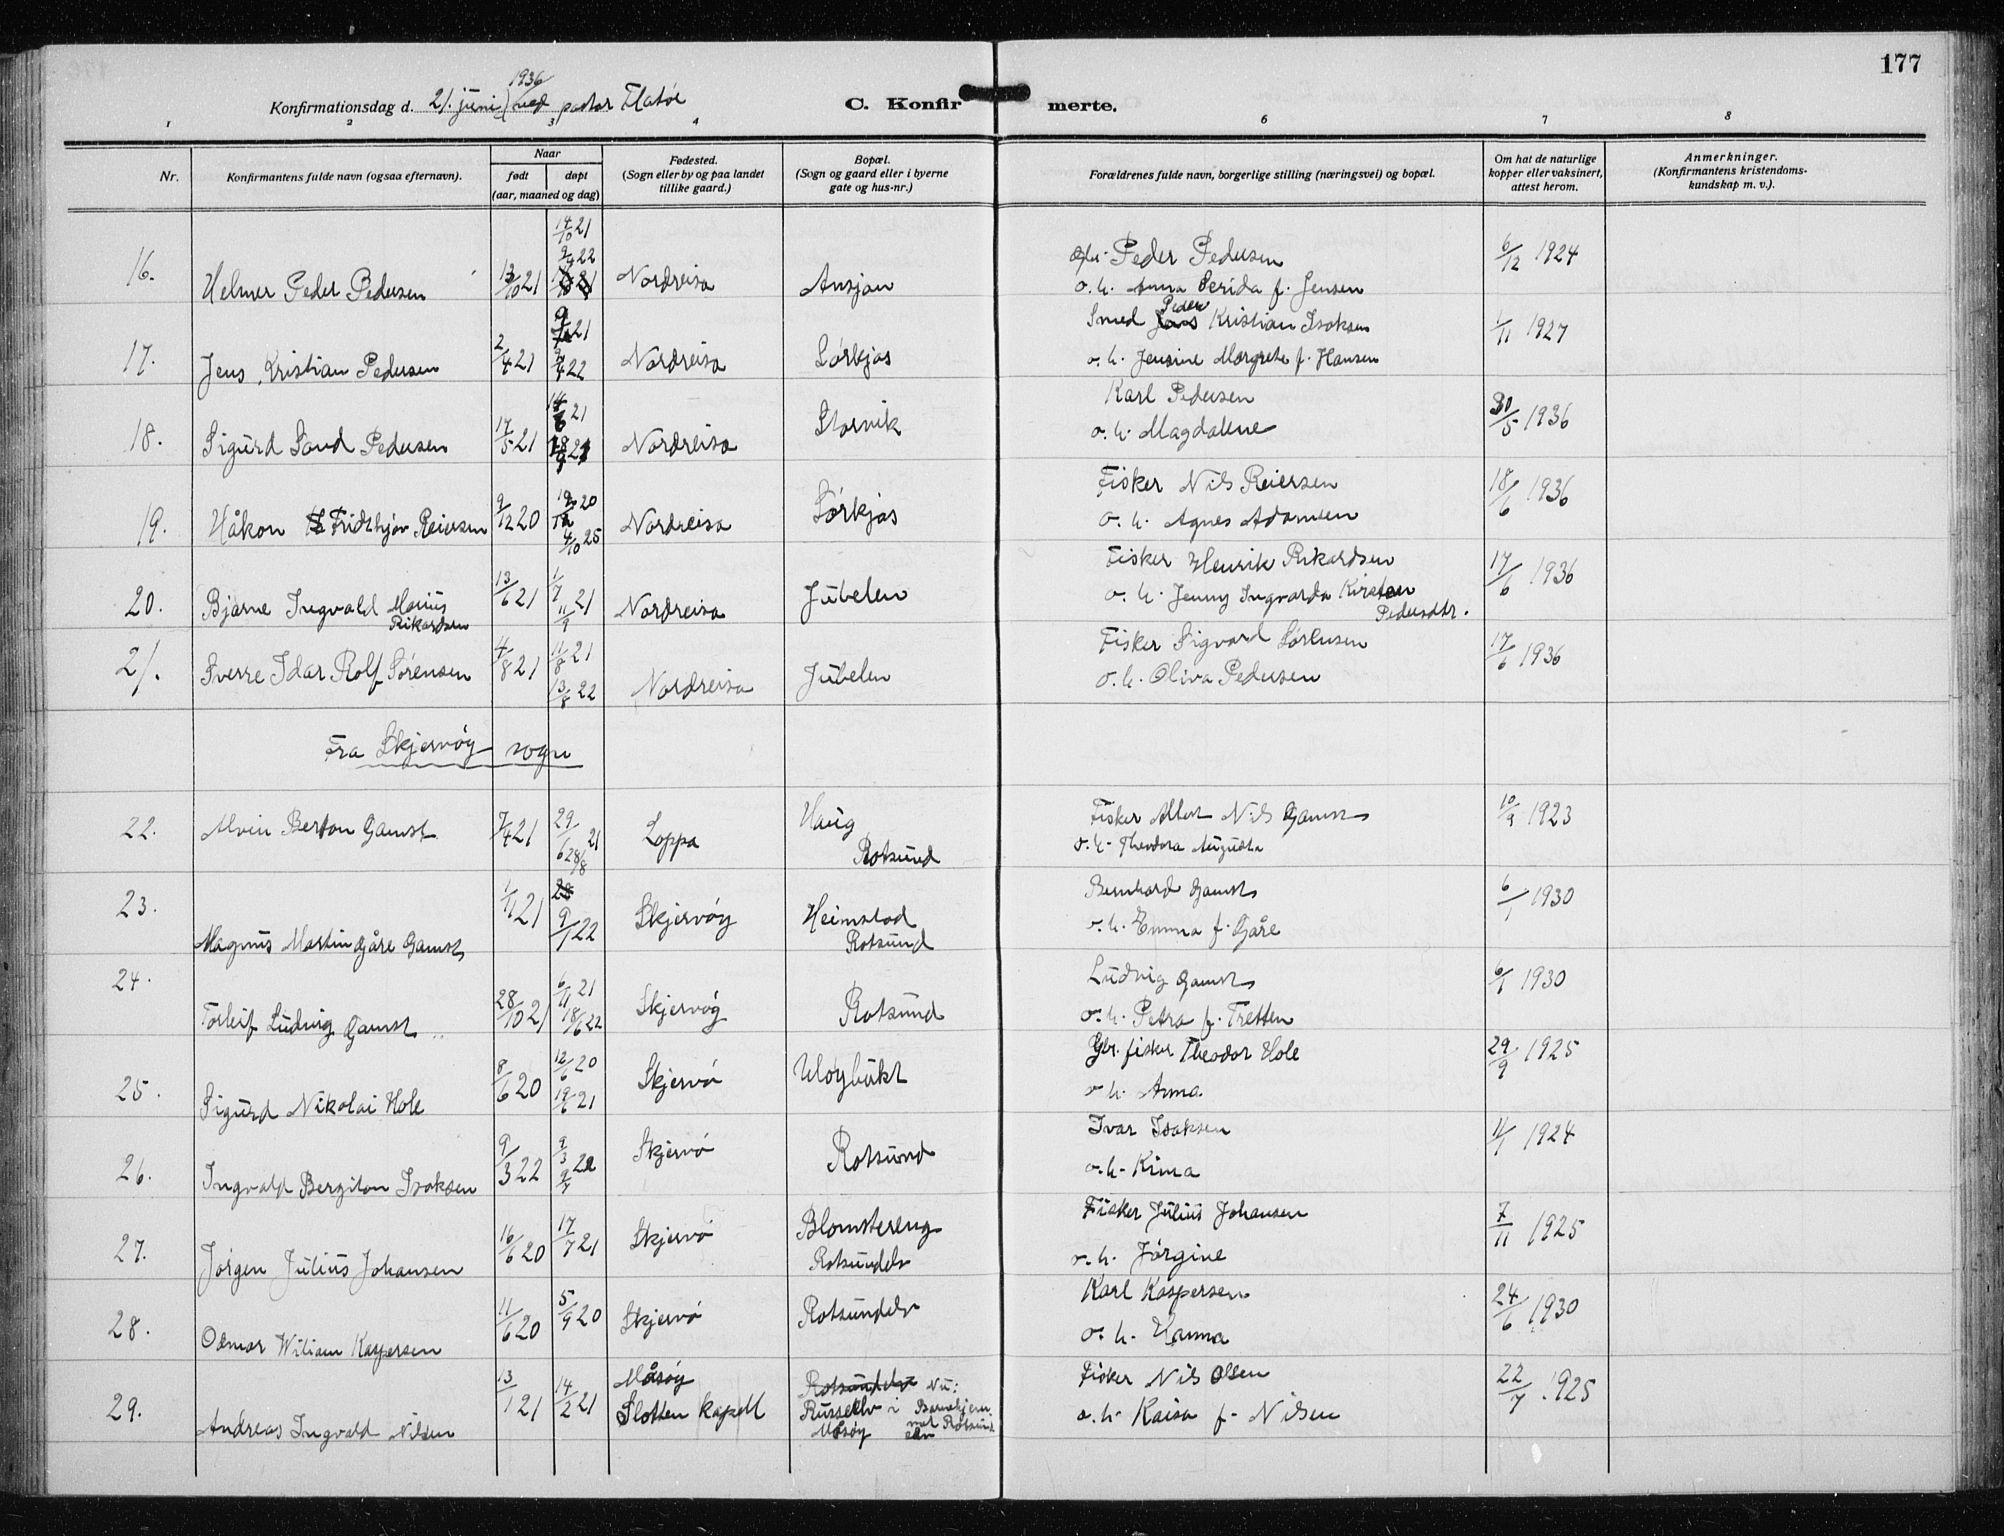 177
1936
Konfirmationsdag d. 21. juni ved pastor Flatøe C. Konfir merte.
1 2 3 4 6 7 8
Nr. Konfirmantens fulde navn (ogsaa efternavn). Naar født døpt (aar, maaned og dag) Fødested. (Sogn eller by og paa landet tillike gaard.) Bopæl. (Sogn og gaard eller i byerne gate og hus-nr.) Forældrenes fulde navn, borgerlige stilling (næringsvei) og bopæl. Om hat de naturlige kopper eller vaksinert, attest herom. Anmerkninger. (Konfirmantens kristendoms- kundskap m. v.).
14/10 21
9/9 22
16. Helmer Peder Pedersen 13/10 21 Nordreisa Ansjon Peder Pedersen 6/12 1924
o. h. Anna Serida f. Jensen
17. Jens Kristian Pedersen 2/4 21 9/4 22 Nordreisa Sörkjos Smed Peder Kristian Isaksen 1/11 1927
o. h. Jensine Margrete f. Hansen
18. Sigurd Sand Pedersen 17/5 21 14/6 21 Nordreisa Storvik Karl Pedersen 30/5 1936
o. h. Magdalene
19. Håkon Fridthjov Reiersen 9/12 20 19/12 20 4/10 25 Nordreisa Sörkjos Fisker Nils Reiersen 18/6 1936
o. h. Agnes Adamsen
20. Bjarne Ingvald Marius Rikardsen 13/6 21 1/7 21 11/9 Nordreisa Jubelen Fisker Henrik Rikardsen 17/6 1936
o. h. Jenny Ingvarda Kirsten Pedersdtr.
21. Sverre Idar Rolf Sørensen 4/8 21 11/8 21 13/8 22 Nordreisa Jubelen Fisker Sigvard Sørensen 17/6 1936
o. h. Oliva Pedersen
Fra Skjervöy sogn
22. Alvin Berton Gamst 7/4 21 29/6 21 28/8 Loppa Haug Rotsund Fisker Albert Nils Gamst 10/9 1923
o. h. Theodora Augusta
23. Magnus Martin Gåre Gamst 1/11 21 9/1 22 Skjervöy Heimstad Rotsund Bernhard Gamst 6/1 1930
o. h. Emma f. Gåre
24. Torleif Ludvig Gamst 28/10 21 6/11 21 18/6 22 Skjervöy Rotsund Ludvig Gamst 6/1 1930
o. h. Petra f. Tretten
25. Sigurd Nikolai Hole 8/6 20 12/6 20 19/6 21 Skjervö Uloybukt Gbr. fisker Theodor Hole 29/9 1925
o h. Anna
26. Ingvald Bergiton Isaksen 9/3 22 9/3 22 9/7 Skjervö Rotsund Ivar Isaksen 11/1 1924
o. h. Kima
27. Jörgen Julius Johansen 16/6 20 17/7 21 Skjervö Blomstereng Rotsundelv Fisker Julius Johansen 7/11 1925
o. h. Jörgine
28. Odmar Wiliam Kaspersen 11/6 20 5/9 20 Skjervö Rotsundelv Karl Kaspersen 24/6 1930
o. h. Hanna
29. Andreas Ingvald Nilsen 13/1 21 14/2 21 Måsöy Slotten kapell Rotsundelv Nu: Russelv i Måsöy Barnehjem ved Rotsund elv Fisker Nils Olsen 22/7 1925
o. h. Kaisa f. Nilsen